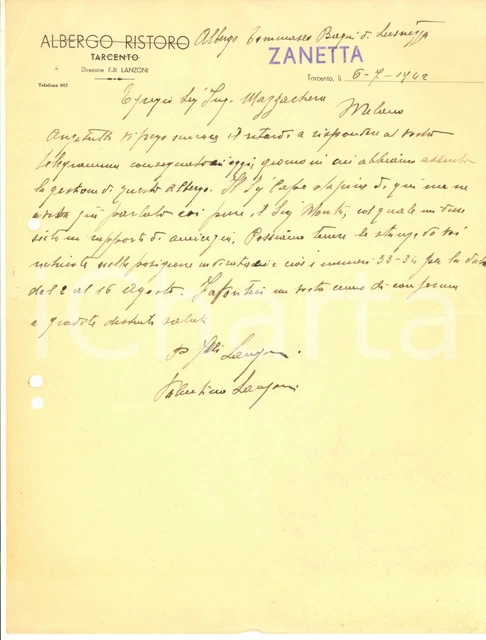 ALBERGO RISTORO Albergo Tommaseo Bagni di Lusnizza
ZANETTA
TARCENTO
Direzione F.lli LANZONI
Telefono 902
Tarcento, lì 6-7-1942
Egregio Sig Ing. Mazzachera
Milano
Anzitutto vi prego scusare il ritardo a rispondere al vostro
telegramma consegnatomi oggi, giorno in cui abbiamo assunto
la gestione di questo albergo. Il Sig Capo stazione di qui me ne
aveva già parlato così pure, il Sig Monti, col quale mi
sisto in rapporto di amicizia, Possiamo tenere le stanze da voi
richieste nella posizione indicataci e cioè i numeri 33-34 per la data
dal 2 al 16 Agosto. un vostro cenno di conferma
e gradite distinti saluti
p. F.lli Lanzoni.
Valentino Lanzoni
iCharta